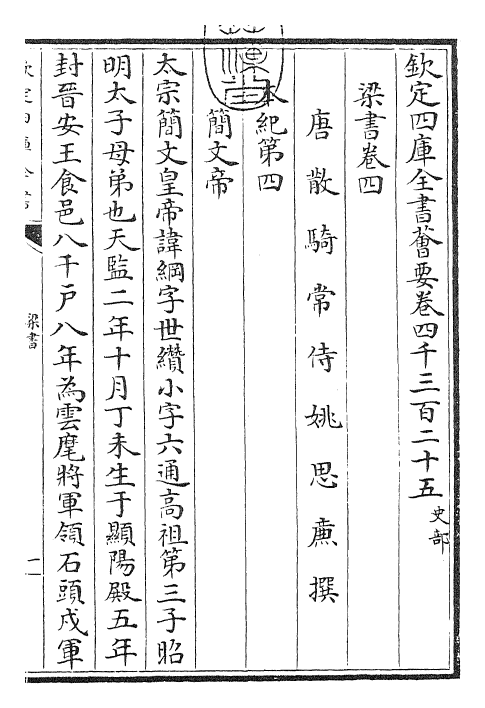 欽定四庫全書薈要卷四千三百二十五 史部
梁書卷四
唐散騎常侍姚思廉撰
本紀第四
簡文帝
太宗簡文皇帝諱綱字世纘小字六通高祖第三子昭
明太子母弟也天監二年十月丁未生于顯陽殿五年
封晉安王食邑八千户八年為雲麾將軍領石頭戍軍
欽定四庫全書
梁書
一